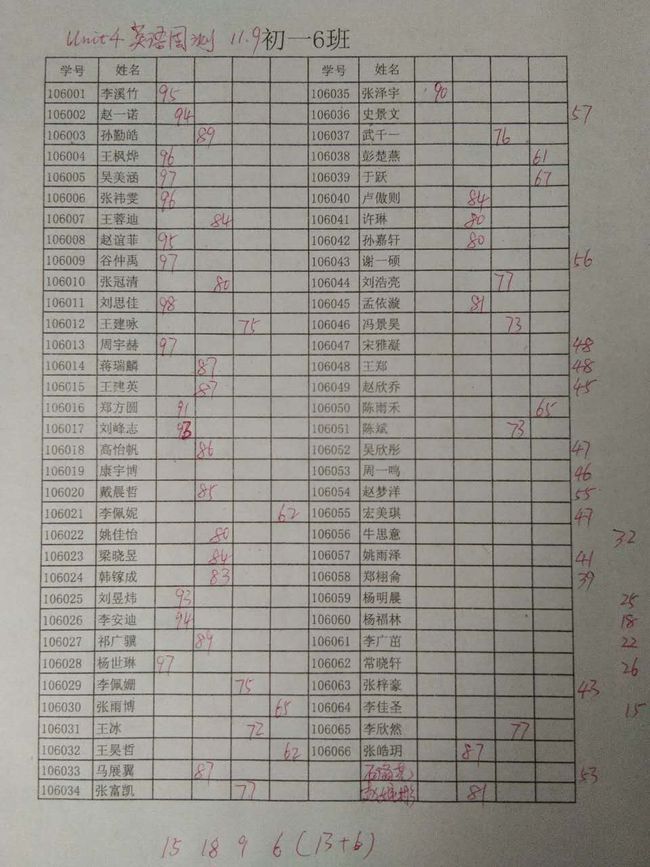 Unit4 英语周测 11.9 初一6班
学号 姓名 学号 姓名
106001 李溪竹 95 106035 张泽宇 90
106002 赵一诺 94 106036 史景文 57
106003 孙勤皓 89 106037 武千一 76
106004 王枫烨 96 106038 彭楚燕 61
106005 吴美涵 97 106039 于跃 67
106006 张祎雯 96 106040 卢傲则 84
106007 王蓉迪 84 106041 许琳 80
106008 赵谊菲 95 106042 孙嘉轩 80
106009 谷仲禹 97 106043 谢一硕 56
106010 张冠清 80 106044 刘浩亮 77
106011 刘思佳 98 106045 孟依漩 81
106012 王建咏 75 106046 冯景昊 73
106013 周宇赫 97 106047 宋雅凝 48
106014 蒋瑞麟 87 106048 王郑 48
106015 王建英 87 106049 赵欣乔 45
106016 郑方圆 91 106050 陈雨禾 65
106017 刘峰志 106051 陈斌 73
106018 高怡帆 86 106052 吴欣彤 47
106019 康宇博 106053 周一鸣 46
106020 戴晨哲 85 106054 赵梦洋 55
106021 李佩妮 62 106055 宏美琪 47
106022 姚佳怡 80 106056 牛思意 32
106023 梁晓昱 84 106057 姚雨泽 41
106024 韩镓成 83 106058 郑栩侖 39
106025 刘昱炜 93 106059 杨明晨 25
106026 李安迪 94 106060 杨福林 18
106027 祁广骥 89 106061 李广茁 22
106028 杨世琳 97 106062 常晓轩 26
106029 李佩姗 75 106063 张梓豪 43
106030 张雨博 65 106064 李佳圣 15
106031 王冰 72 106065 李欣然 77
106032 王昊哲 62 106066 张皓玥 87
106033 马展翼 87 53
106034 张富凯 77 81
15 18 9 6 (13+6)